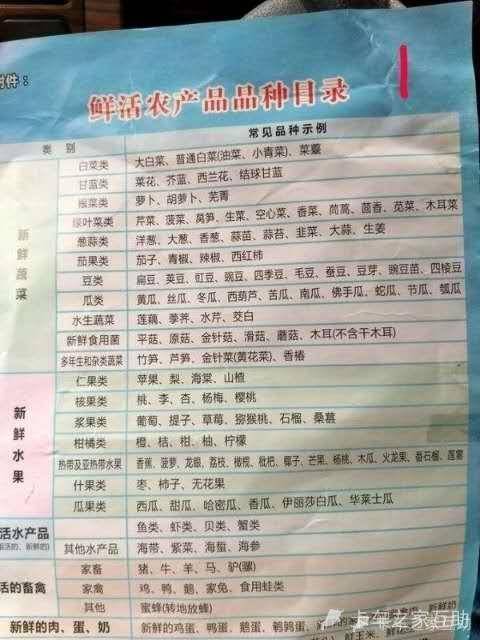 附件：
鲜活农产品品种目录
类 别 常见品种示例
新鲜蔬菜
白菜类 大白菜、普通白菜(油菜、小青菜)、菜薹
甘蓝类 菜花、芥蓝、西兰花、结球甘蓝
根菜类 萝卜、胡萝卜、芜菁
绿叶菜类 芹菜、菠菜、莴笋、生菜、空心菜、香菜、茼蒿、茴香、苋菜、木耳菜
葱蒜类 洋葱、大葱、香葱、蒜苗、蒜苔、韭菜、大蒜、生姜
茄果类 茄子、青椒、辣椒、西红柿
豆类 扁豆、荚豆、豇豆、豌豆、四季豆、毛豆、蚕豆、豆芽、豌豆苗、四棱豆
瓜类 黄瓜、丝瓜、冬瓜、西葫芦、苦瓜、南瓜、佛手瓜、蛇瓜、节瓜、瓠瓜
水生蔬菜 莲藕、荸荠、水芹、茭白
新鲜食用菌 平菇、原菇、金针菇、滑菇、蘑菇、木耳(不含干木耳)
多年生和杂类蔬菜 竹笋、芦笋、金针菜(黄花菜)、香椿
新鲜水果
仁果类 苹果、梨、海棠、山楂
核果类 桃、李、杏、杨梅、樱桃
浆果类 葡萄、提子、草莓、猕猴桃、石榴、桑葚
柑橘类 橙、桔、柑、柚、柠檬
热带及亚热带水果 香蕉、菠萝、龙眼、荔枝、橄榄、枇杷、椰子、芒果、杨桃、木瓜、火龙果、番石榴、莲雾
什果类 枣、柿子、无花果
瓜果类 西瓜、甜瓜、哈密瓜、香瓜、伊丽莎白瓜、华莱士瓜
活水产品
鱼类、虾类、贝类、蟹类
其他水产品 海带、紫菜、海蜇、海参
活的畜禽
家畜 猪、牛、羊、马、驴(骡)
家禽 鸡、鸭、鹅、家兔、食用蛙类
其他 蜜蜂(转地放蜂)
新鲜的肉、蛋、奶 新鲜的鸡蛋、鸭蛋、鹅蛋、鹌鹑蛋、
卡车之家互助